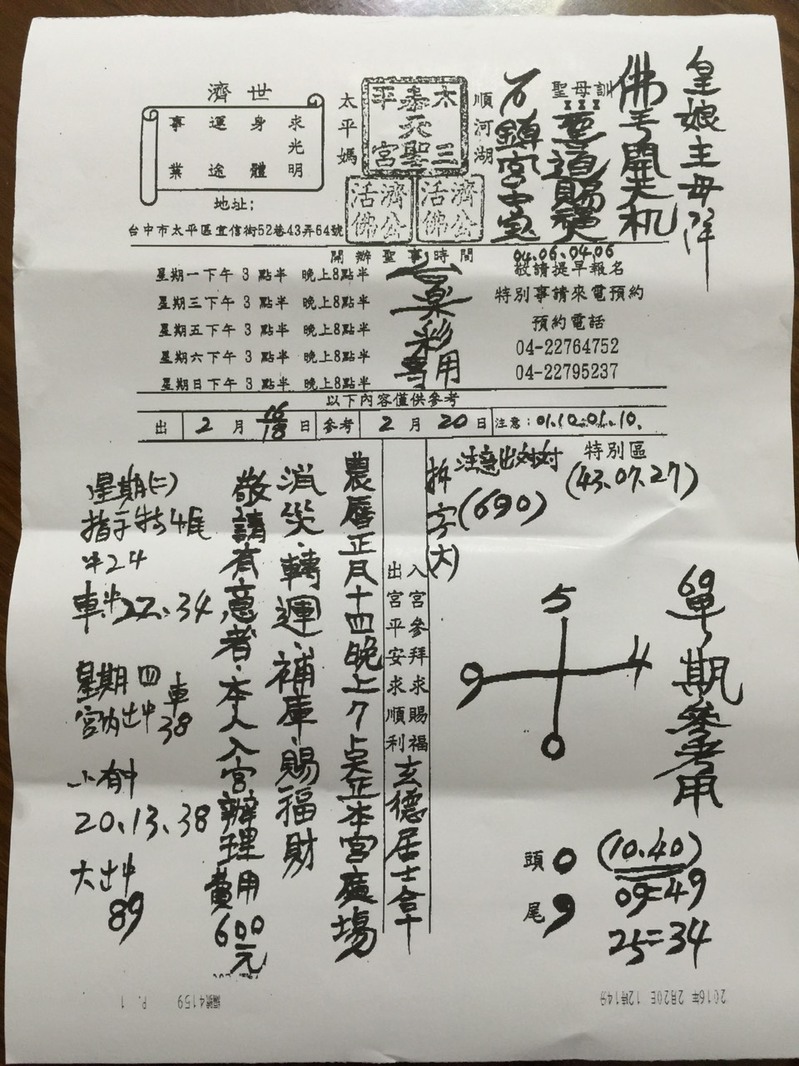 皇娘主母降
佛手開天机
聖母訓
順河湖
太平媽
木泰平
三天宮
聖
濟公活佛
濟公活佛
濟世
求光明
身體
運途
事業
地址:
台中市太平區宜信街52巷43弄64號
開辦聖事時間
星期一下午3點半 晚上8點半
星期三下午3點半 晚上8點半
星期五下午3點半 晚上8點半
星期六下午3點半 晚上8點半
星期日下午3點半 晚上8點半
彩
專用
04.06.04.06
敬請提早報名
特別事請來電預約
預約電話
04-22764752
04-22795237
以下內容僅供參考
出 2月 16 18 日 參考 2月20日 注意:01.10.01.10.
特別區
(43.07.27)
注意出対対
(690)
拆字(大)
69單期參考用
5
9 4
0
頭 0
尾 9
(10.40)
09=49
25=34
入宮參拜求賜福
出宮平安求順利
玄德居士合十
農曆正月十四晚上7点正本宮廣場
消災.轉運.補庫.賜福財
敬請有意者.本人入宮辦理費用600元
星期(二)
指示特4尾
24
車 22.34
星期四
宮內 車38
小
20.13.38
大
89
2016年 2月20日 12時149
編號4159 P. 1